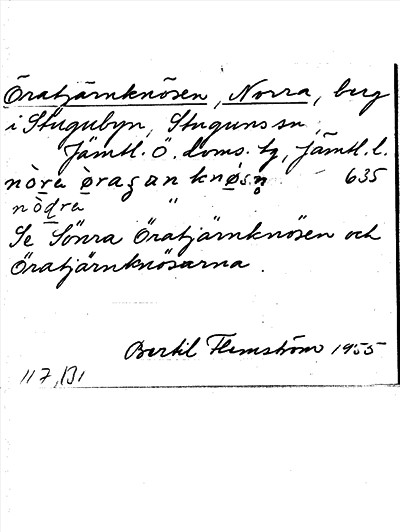 Öratjärnknösen, Norra, berg
i Stugubyn, Stuguns sn,
Jämtl. Ö. doms. tg, Jämtl. l.
nòra òragan knøsn̥ 635
nòdra "
Se Sönra Öratjärnknösen och
Öratjärnknösarna.
Bertil Flemström 1955
117, B1